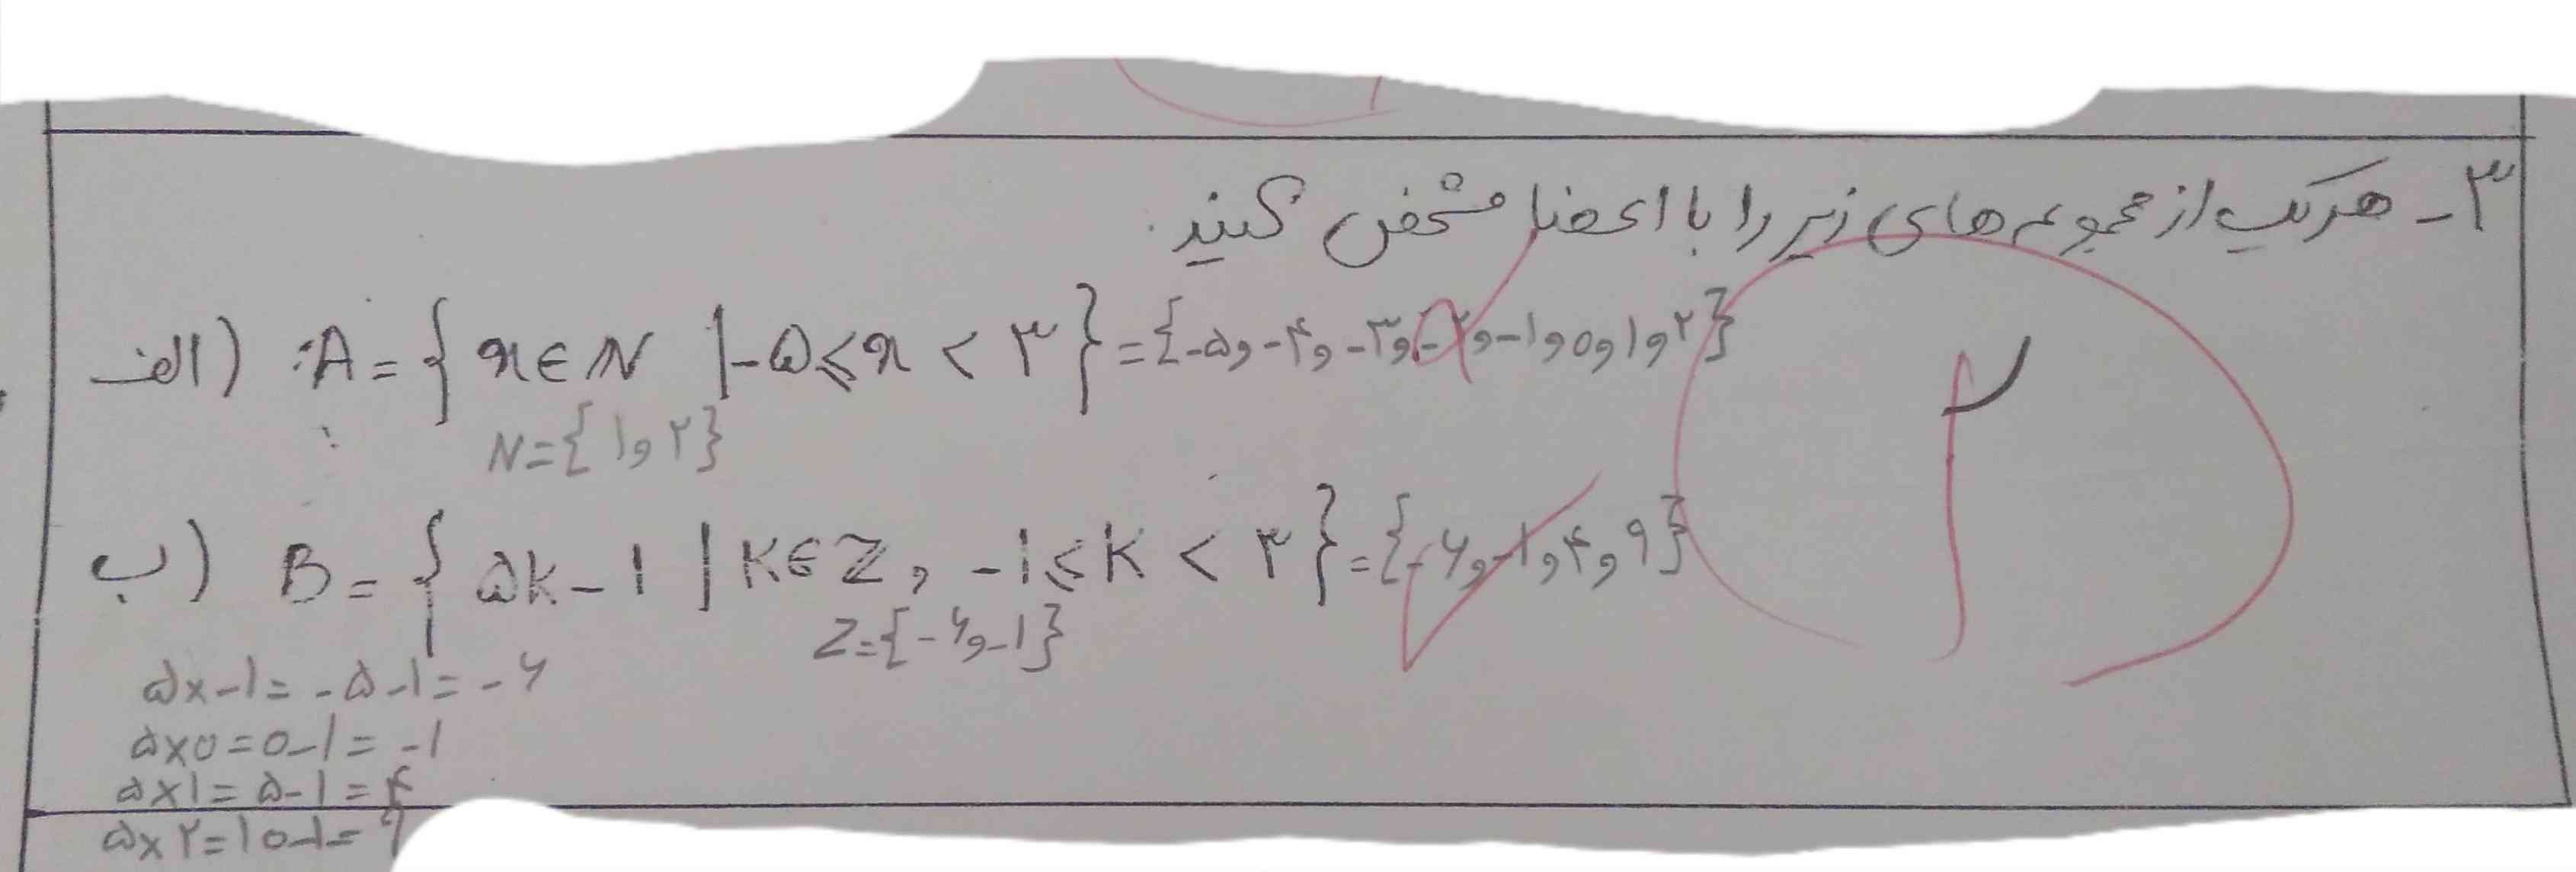 ۳- هر یک از مجموعه های زیر را با اعضا مشخص کنید.
الف) A = { x ∈ N | -۵ ⩽ x < ۳ } = {-۵و-۴و-۳و-۲و-۱و۰و۱و۲}
N = {۱و۲}
ب) B = { ۵k - ۱ | K ∈ Z و -۱ ⩽ K < ۳ } = {-۶و-۱و۴و۹}
Z = {-۶و-۱}
۲
۵×-۱ = -۵-۱ = -۶
۵×۰ = ۰-۱ = -۱
۵×۱ = ۵-۱ = ۴
۵×۲ = ۱۰-۱ = ۹